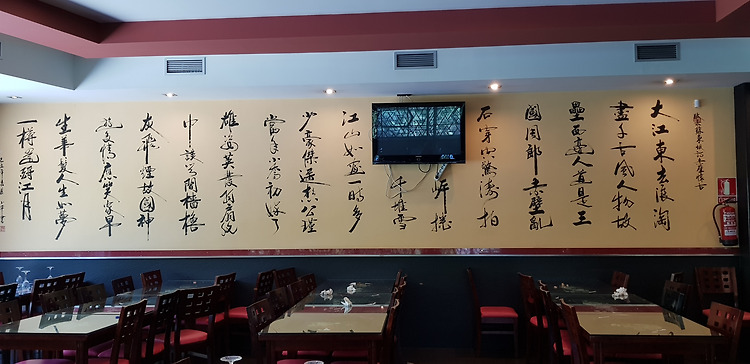 大江東去浪淘
盡千古風人物故
壘西邊人道是三
國周郎赤壁亂
石穿空驚濤拍
岸捲
千堆雪
江山如畫一時多
少豪傑遙想公瑾
當年小喬初嫁了
雄姿英發羽扇綸
巾談笑間檣櫓
灰飛煙滅故國神
遊多情應笑我早
生華髮人生如夢
一樽還酹江月